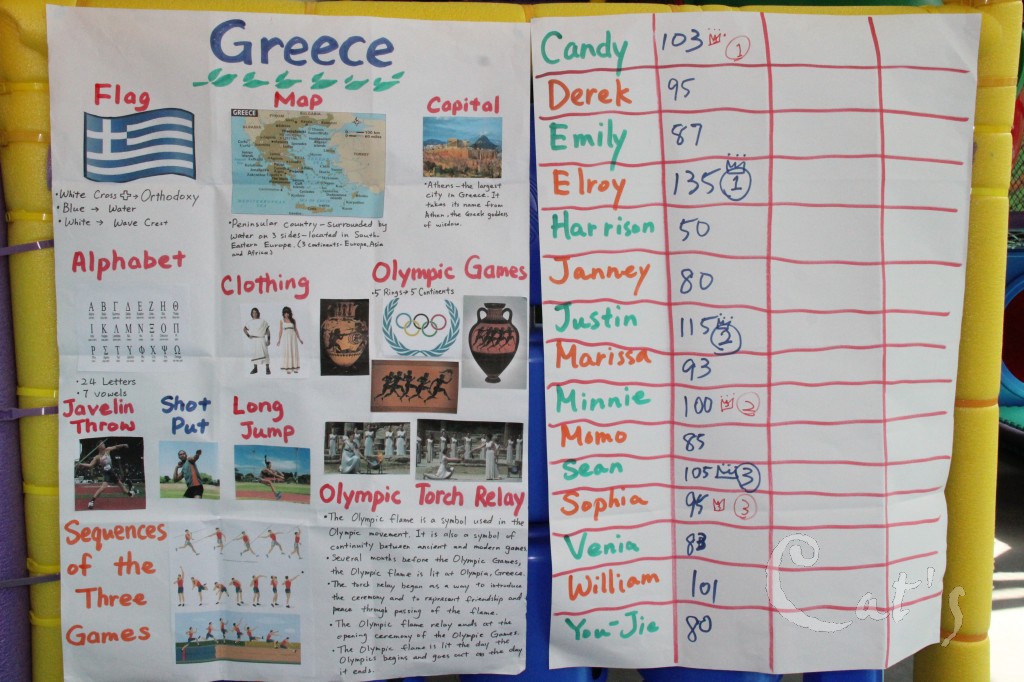 Greece
Flag
• White Cross → Orthodoxy
• Blue → Water
• White → Wave Crest
Map
GREECE
• Peninsular country - Surrounded by
Water on 3 sides - located in South-
Eastern Europe. (3 continents - Europe, Asia
and Africa)
Capital
• Athens - the largest
city in Greece. It
takes its name from
Athen, the Greek goddess
of window.
Alphabet
Α Β Γ Δ Ε Ζ Η Θ
Ι Κ Λ Μ Ν Ξ Ο Π
Ρ Σ Τ Υ Φ Χ Ψ Ω
• 24 Letters
• 7 vowels
Clothing
Olympic Games
• 5 Rings → 5 Continents
Javelin
Throw
Shot
Put
Long
Jump
Sequences
of the
Three
Games
Olympic Torch Relay
• The Olympic flame is a symbol used in the
Olympic movement. It is also a symbol of
continuity between ancient and modern games
• Several months before the Olympic Games,
the Olympic flame is lit at Olympia, Greece.
• The torch relay began as a way to introduce
the ceremony and to represent friendship and
peace through passing of the flame.
• The Olympic flame relay ends at the
opening ceremony of the Olympic Games.
• The Olympic flame is lit the day the
Olympics begins and goes out on the day
it ends.
Candy 103 1
Derek 95
Emily 87
Elroy 135 1
Harrison 50
Janney 80
Justin 115 2
Marissa 93
Minnie 100 2
Momo 85
Sean 105 3
Sophia 95 3
Venia 83
William 101
You-Jie 80
Cat's